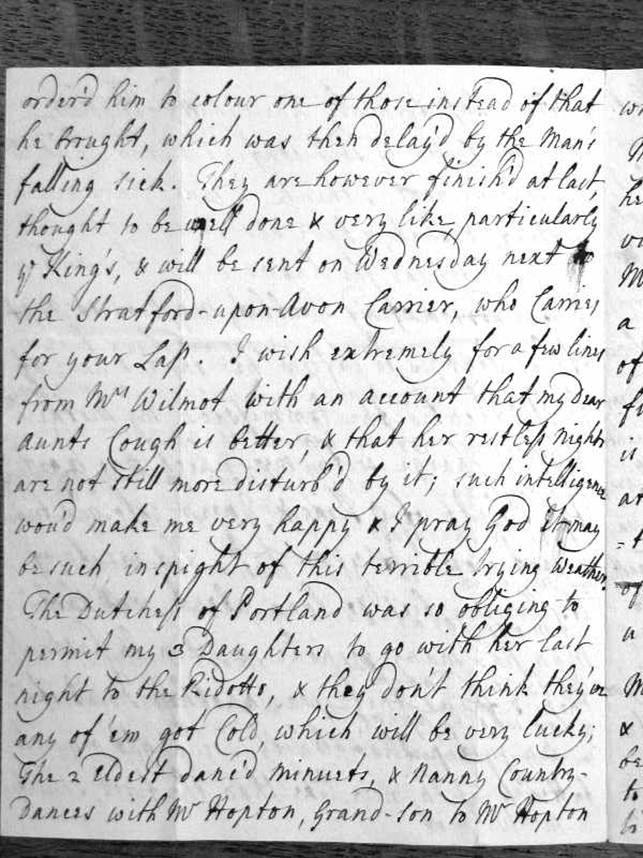 order'd him to colour one of those instead of that
he brought, which was then delay'd by the Man's
falling sick. They are however finish'd at last,
thought to be well done & very like, particularly
ye King's, & will be sent on Wednesday next to
the Stratford-upon-Avon Carrier, who Carries
for your Lap. I wish extremely for a few lines
from Mrs Wilmot with an account that my dear
aunts Cough is better, & that her restless nights
are not still more disturb'd by it; such intelligence
wou'd make me very happy & I pray God it may
be such inspight of this terrible trying weather.
The Dutchess of Portland was so obliging to
permit my 3 Daughters to go with her last
night to the Ridotto, & they don't think they've
any of 'em got Cold, which will be very lucky;
The 2 Eldest danc'd minuets, & Nanny Country-
Dances with Mr Hopton, Grand-son to Mr Hopton